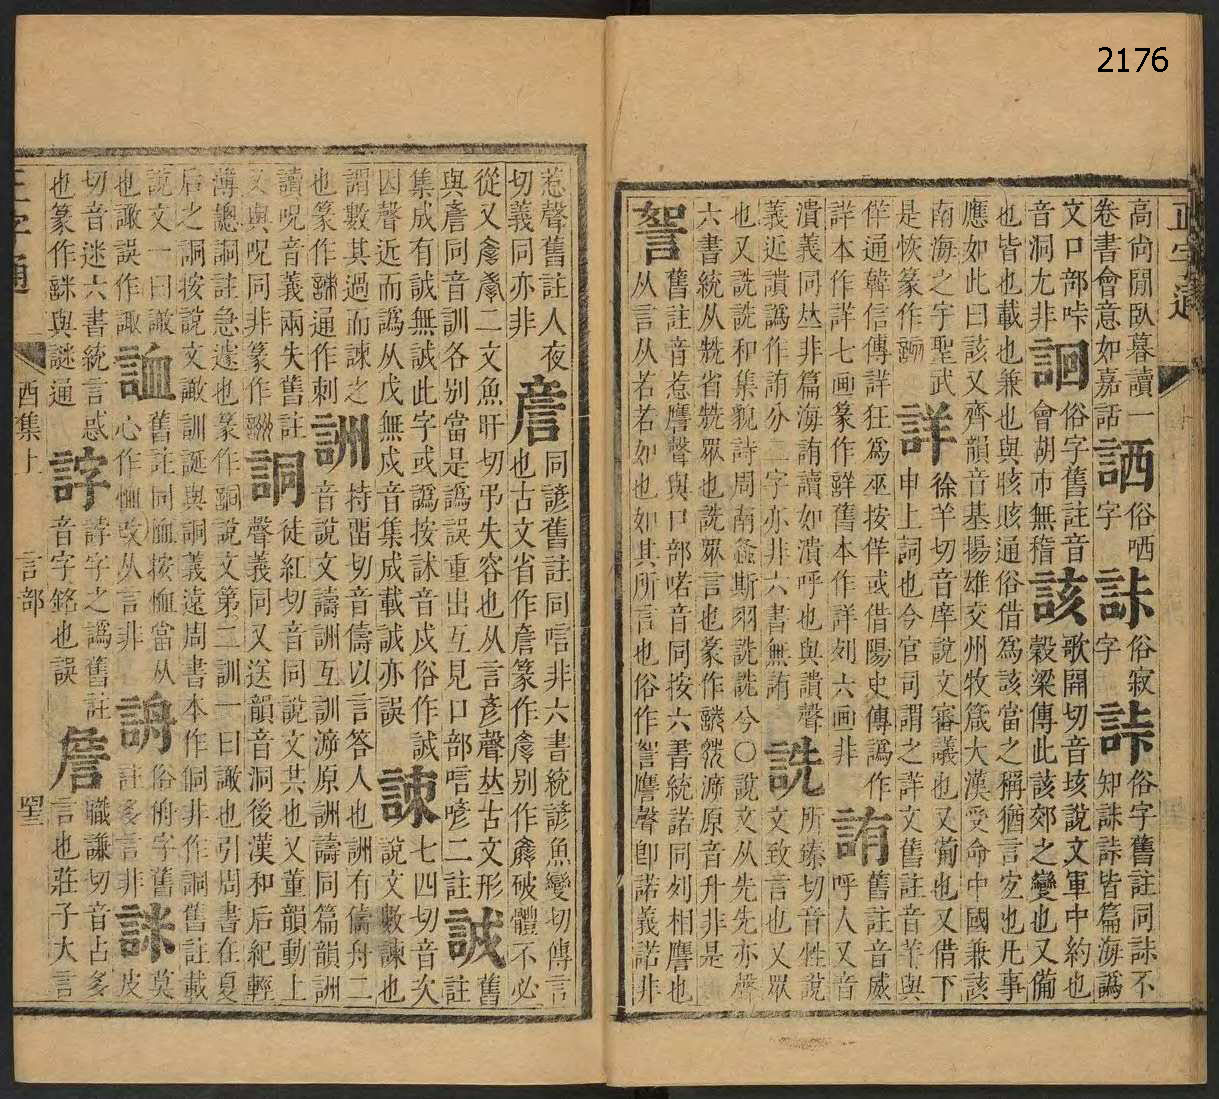 2176
正字通
高尙閒臥暮讀一
卷書會意如嘉話 䛽 俗哂字 誁 俗寂字 䛿 俗字舊註同誁不
文口部咔 知誁䛿皆篇海譌
音洞尤非 詷 俗字舊註音 會胡市無稽 該 歌開切音垓說文軍中約也
也皆也載也兼也與晐賅通俗借爲該當之稱猶言宐也凡事
應如此曰該又齊韻音基揚雄交州牧箴大漢受命中國兼該
南海之宇聖武 詳 徐羊切音庠說文審議也又葡也又借下
是恢篆作 申上詞也今官司謂之詳文舊註音羊與
佯通韓信傳詳狂爲巫按佯或借陽史傳譌作
詳本作詳七画篆作詳舊本作詳刻六画非 詴 舊註音威 呼人又音
潰義同𠀤非篇海詴讀如潰呼也與讃聲
義近讃譌作詴分二字亦非六書無詴 詵 所臻切音牲說文致言也又眾
也又詵詵和集貌詩周南螽斯羽詵詵兮〇說文从先先亦聲
六書統从兟省兟眾也詵眾言也篆作 溯原音升非是
諎 舊註音惹譍聲與口部喏音同按六書統諾同刻相譍也
从言从若若如也如其所言也俗作諎譍聲卽諾義諾非
惹聲舊註人夜
切義同亦非 詹 同諺舊註同唁非六書統諺魚變切傳言也古文省作詹篆作 别作 破體不必
從又 二文魚肝切弔失容也从言彥聲𠀤古文形
與詹同音訓各别當是譌誤重出互見口部唁喭二註 誠 舊註
集成有誠無誠此字或譌按訹音戍俗作誠
因聲近而譌从戊無戍音集成載誠亦誤 諫 七四切音次說文數諫也
謂數其過而諫之
也篆作諫通作刺 詶 持畱切音儔以言答人也詶有儔舟二
音說文譸詶互訓溯原詶譸同篇韻詶
讀呪音義兩失舊註
又與呪同非篆作詶 詷 徒紅切音同說文共也又董韻動上
聲義同又送韻音洞後漢和后紀輕
薄謥詷註急遽也篆作詷說文第二訓一曰譀也引周書在夏
后之詷按說文譀訓誕與詷義遠周書本作侗非作詷舊註載
說文一曰譀
也譀誤作諏 䛗 舊註同恤按恤當从
心作恤改从言非 䛥 俗侜字舊
註多言非 詸 莫皮
切音迷六書統言惑
也篆作詸與謎通 䛨 誟字之譌舊註
音字銘也誤 詹 職謙切音占多
言也莊子大言
正字通
酉集上
言部